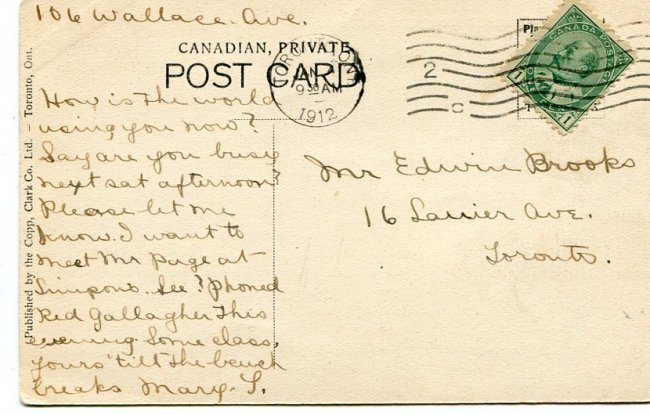 106 Wallace Ave.
CANADIAN, PRIVATE
POST CARD
TORONTO
JAN
9 30 AM
1912
2
C
CANADA POSTAGE
1
1
How is the world
using you now?
Say are you busy
next sat afternoon?
Please let me
know. I want to
meet Mr Page at
Simpsons. See? Phoned
Red Gallagher this
evening some class,
yours 'till the bench
breaks Mary. S.
Mr Edwin Brooks
16 Laurier Ave.
Toronto.
Published by the Copp, Clark Co. Ltd. — Toronto, Ont.